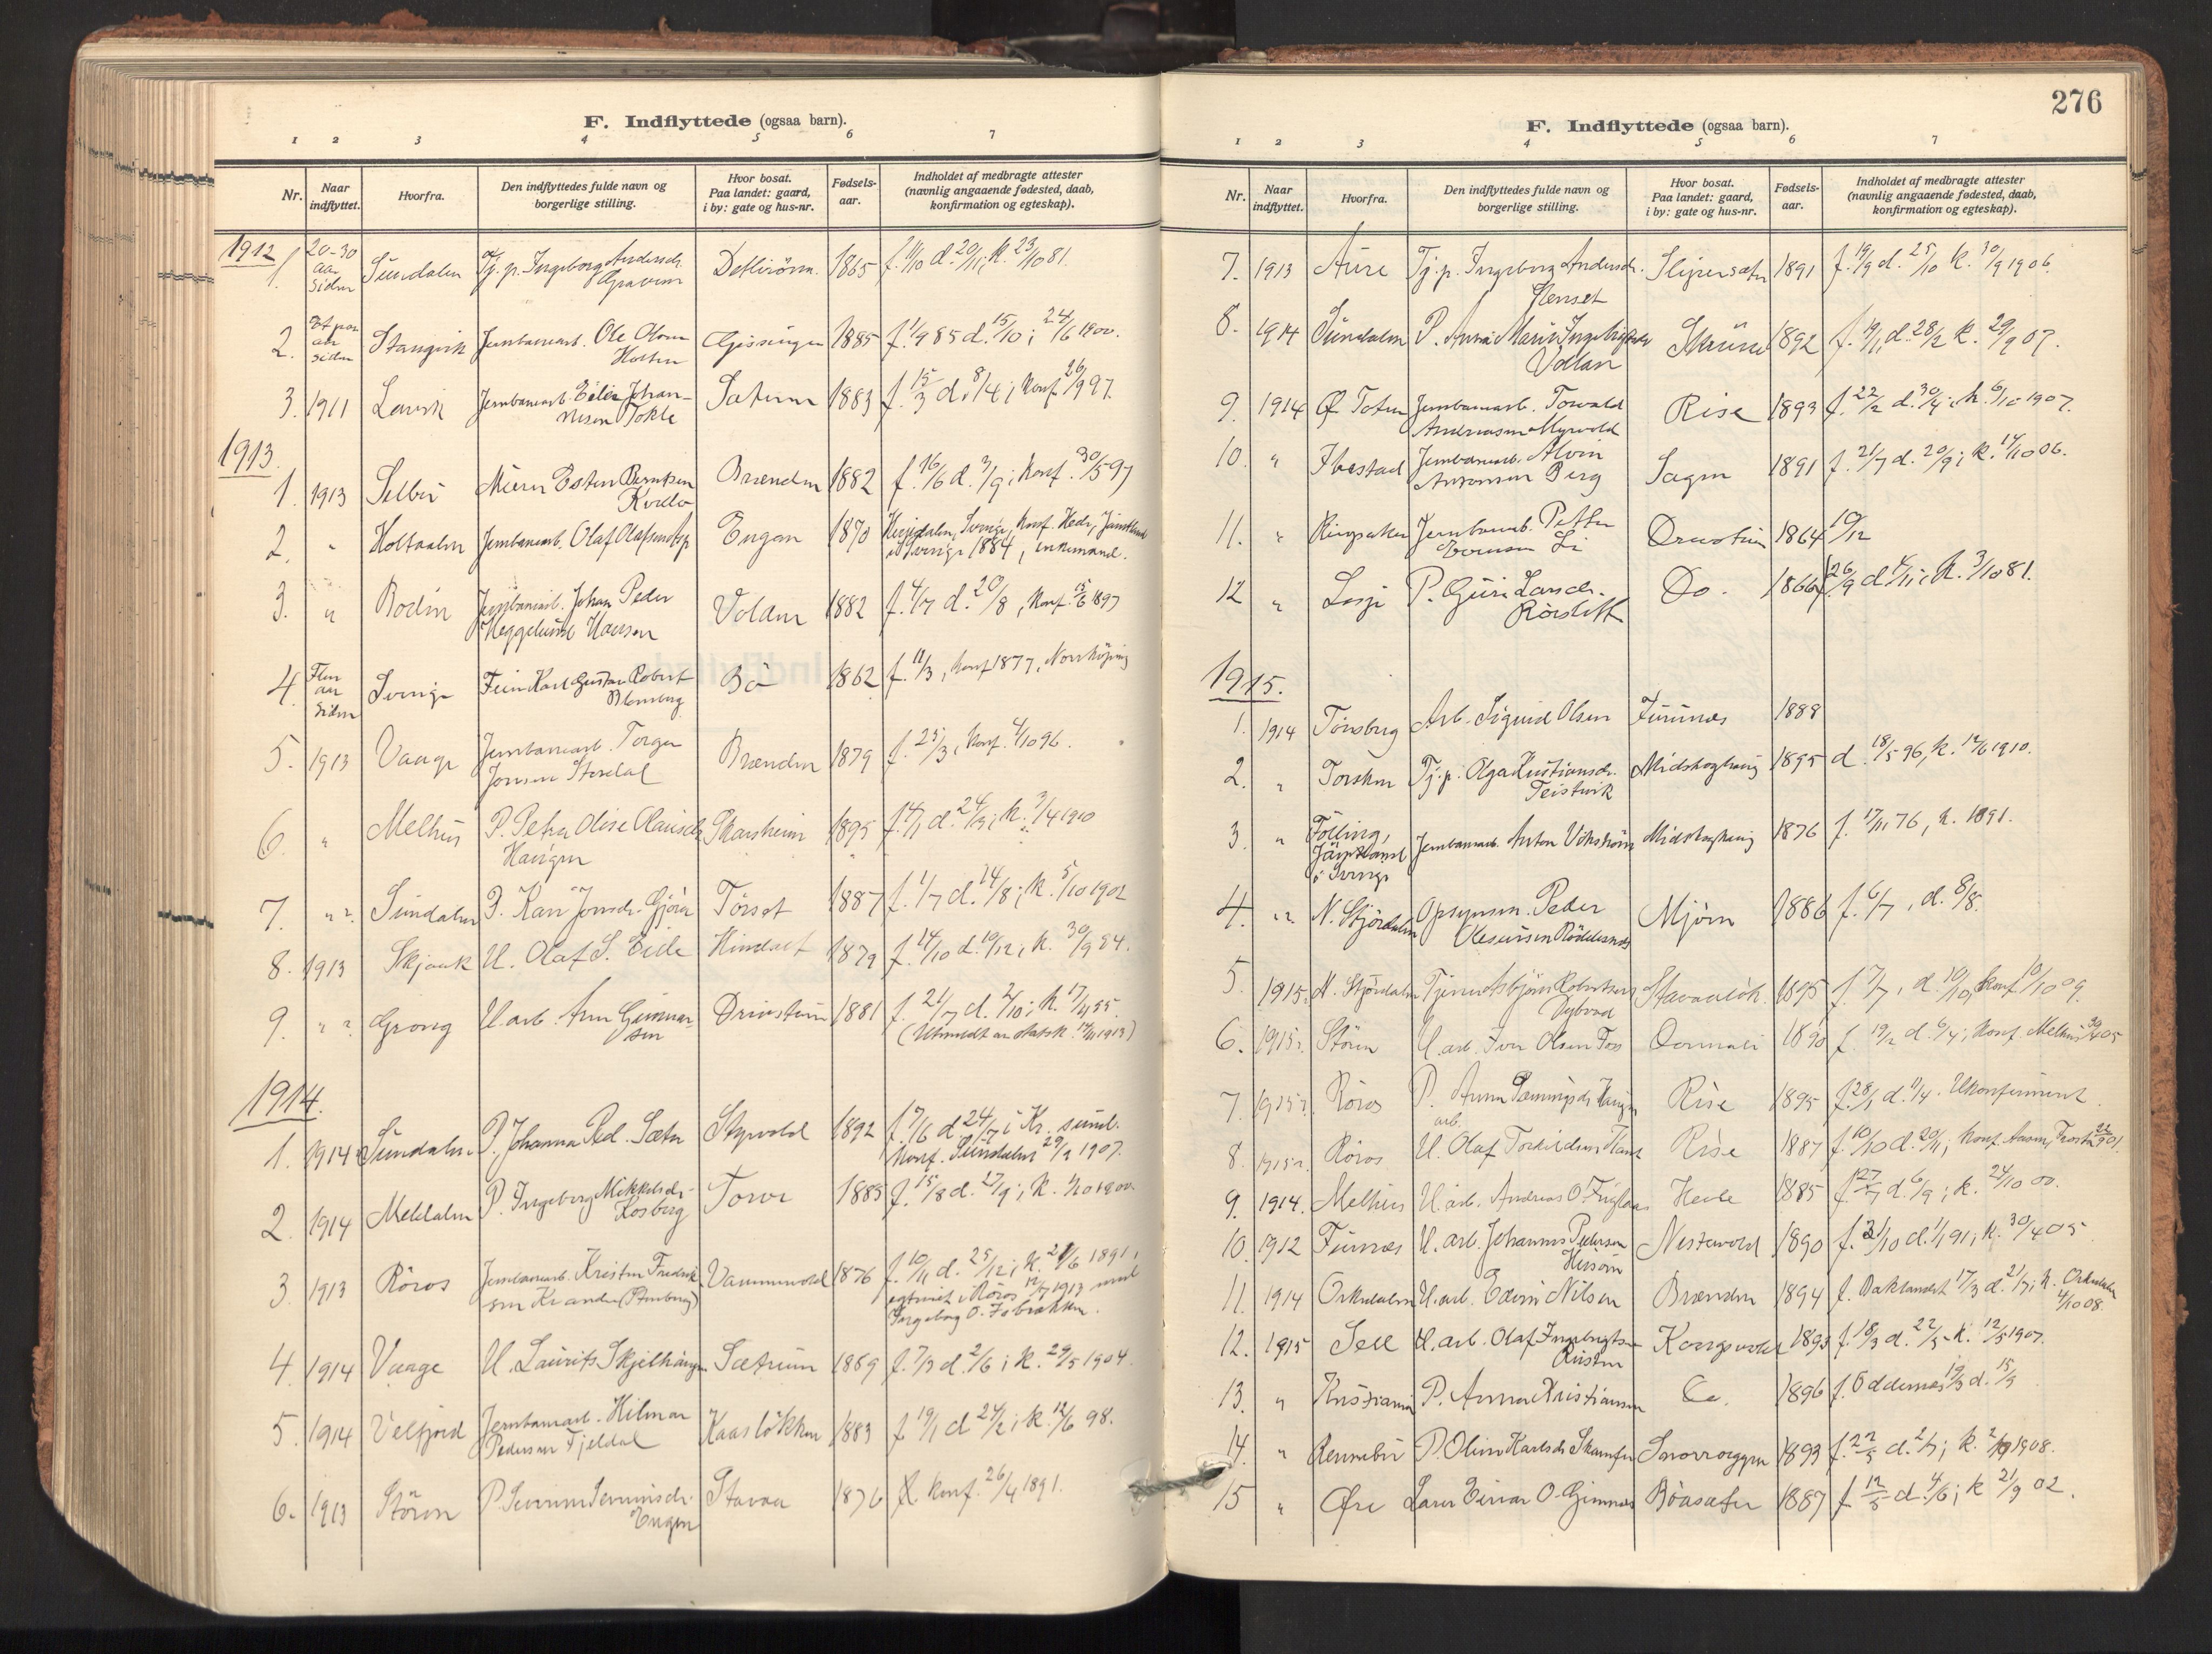 F. Indflyttede (ogsaa barn).
1 2 3 4 5 6 7
Nr. Naar indflyttet. Hvorfra. Den indflyttedes fulde navn og borgerlige stilling. Hvor bosat. Paa landet: gaard, i by: gate og hus-nr. Fødsels-aar. Indholdet af medbragte attester (navnlig angaaende fødested, daab, konfirmation og egteskap).
1912
1. 20-30 aar siden Sundalen Tj. p. Ingeborg Andersdr. 1865 d. 20/11; k. 23/10 81.
2. Et par aar siden Stangvik Jernbanearb. Ole Olsen Holten Gissingen 1885 f. 1/9 85 d. 15/10; 24/6 1900.
3. 1911 Lenvik Jernbanearb. Johannesen Tokle Sætern 1883 f. 15/3 d. 8/4; konf. 26/9 97.
1913.
1. 1913 Selbu Esten Berntsen Brænden 1882 f. 16/6 d. 3/9; konf. 30/5 97
2. " Holtaalen Jernbanearb. Olaf Olafsen Engan 1870 Sverige, konf. Hede, Jämtland i Sverige 1884, enkemand.
3. " Bodin Jernbanearb. Johan Peder Heggelund Hansen Volden 1882 f. 4/7 d. 20/8, konf. 15/6 1897
4. Flere aar siden Sverige Karl Gustav Robert Blomberg Bö 1862 f. 11/3, konf. 1877, Norrköping
5. 1913 Vaage Jernbanearb. Torger Jonsen Stordal Brænden 1879 f. 25/3, konf. 4/10 96.
6. " Melhus P. Petra Olise Olausdr. Haugen Skarsheim 1895 f. 14/1 d. 24/3; k. 3/4 1910
7. " Sundalen P. Kari Jonsdr. Gjöra Törset 1887 f. 1/7 d. 14/8; k. 5/10 1902
8. 1913 Skjaak U. Olaf S. Eide 1879 f. 14/10 d. 19/12; k. 30/9 94.
9. " Grong U. arb. Arne Gunnarsen Drivstuen 1881 f. 21/7 d. 2/10; k. 17/11 95.
(Utmeldt av statsk. 14/11 1913)
1914.
1. 1914 Sundalen P. Johanna Ped. Sæter 1892 f. 17/6 d. 24/7 i Kr.sund. Konf. Sundalen 29/9 1907.
2. 1914 Meldalen P. Ingeborg Mikkelsdr. Kosberg Torve 1885 f. 15/8 d. 27/9; k. 1/10 1900.
3 1913 Röros Jernbanearb. Kristen Fredriksen Vammervold 1876 f. 10/11 d. 25/12; k. 21/6 1891,
Röros 1913 med Ingeborg O.
4. 1914 Vaage U. Laurits Skjelhaugen Sætrum 1889 f. 7/3 d. 2/6; k. 29/5 1904.
5. 1914 Velfjord Jernbanearb. Hilmar Pedersen Fjeldal Kaaslökken 1883 f. 19/1 d. 24/2; k. 12/6 98.
6. 1913 Stören P. Engen Stavaa 1876 konf. 26/4 1891.
276
F. Indflyttede (ogsaa barn).
1 2 3 4 5 6 7
Nr. Naar indflyttet. Hvorfra. Den indflyttedes fulde navn og borgerlige stilling. Hvor bosat. Paa landet: gaard, i by: gate og hus-nr. Fødsels-aar. Indholdet af medbragte attester (navnlig angaaende fødested, daab, konfirmation og egteskap).
7. 1913 Aure Tj. p. Ingeborg Andersdr. Stenset Slipersæter 1891 f. 19/9 d. 25/10 k. 30/9 1906.
8. 1914 Sundalen P. Anne Marie Vollan 1892 f. 19/11 d. 28/2 k. 29/9 07.
9. 1914 Ø. Toten Jernbanearb. Torvald Andreassen Myrvold Rise 1893 f. 22/2 d. 30/4; k. 6/10 1907.
10. " Ibestad Jernbanearb. Alvin Antonsen Berg Sagen 1891 f. 21/7 d. 20/9; k. 14/10 06.
11. " Ringsaker Jernbanearb. Petter Li Drivstuen 1864 19/12
12 " Lesje P. Guri Larsdr. Rörslett Do. 1866 f. 26/9 d. 4/11; k. 3/10 81.
1915.
1. 1914 Tönsberg Arb. Sigurd Olsen Furunes 1888
2. " Torsken Tj. p. Olga Kristiansdr. Teistevik Midskoghaug 1895 d. 18/5 96, k. 12/6 1910.
3. " Fölling, Jämtland i Sverige Jernbanearb. Anton Vikström Midskoghaug 1876 f. 17/11 76, k. 1891.
4. " N. Stjördalen Opsynsm. Peder Mjöen 1886 f. 6/7, d. 8/8.
5. 1915. N. Stjördalen Tjener Asbjörn Robertsen 1895 f. 7/7, d. 10/10, konf. 10/10 09.
6. 1915. Stören U. arb. Iver Olsen Foss 1890 f. 19/2 d. 6/4; konf. Melhus 30/4 05
7. 1915 Röros P. Anna Haugen Rise 1895 f. 28/1 d. 1/4. Ukonfirmert.
8. 1915 Röros U. arb. Olaf Rise 1887 f. 10/10 d. 20/11; konf. Aasen, Frosta 22/9 01.
9. 1914. Melhus U. arb. Andreas O. Fuglaas Hevle 1885 f. 27/7 d. 6/9; k. 24/10 00.
10. 1912 Furnes U. arb. Johannes Pedersen Nestavold 1890 f. 31/10 d. 1/1 91; k. 30/4 05
11. 1914 Orkedalen U. arb. Edvin Nilsen Brænden 1894 f. Baklandet 17/3 d. 21/7; k. Orkedalen 4/10 08.
12. 1915 Sell U. arb. Olaf Ingebrigtsen Rusten Kongsvold 1893 f. 18/3 d. 22/5 k. 12/5 1907.
13. " Kristiania P. Anna Kristiansen Do. 1896 f. Oddernes 19/3 d. 15/9
14. " Rennebu P. Oline Karlsdr. Skamfer Snorroeggen 1893 f. 22/5 d. 2/7; k. 1908.
15 " Øre Lærer Einar O. Gimnes Böasæter 1887 f. 12/5 d. 4/6; k. 21/9 02.